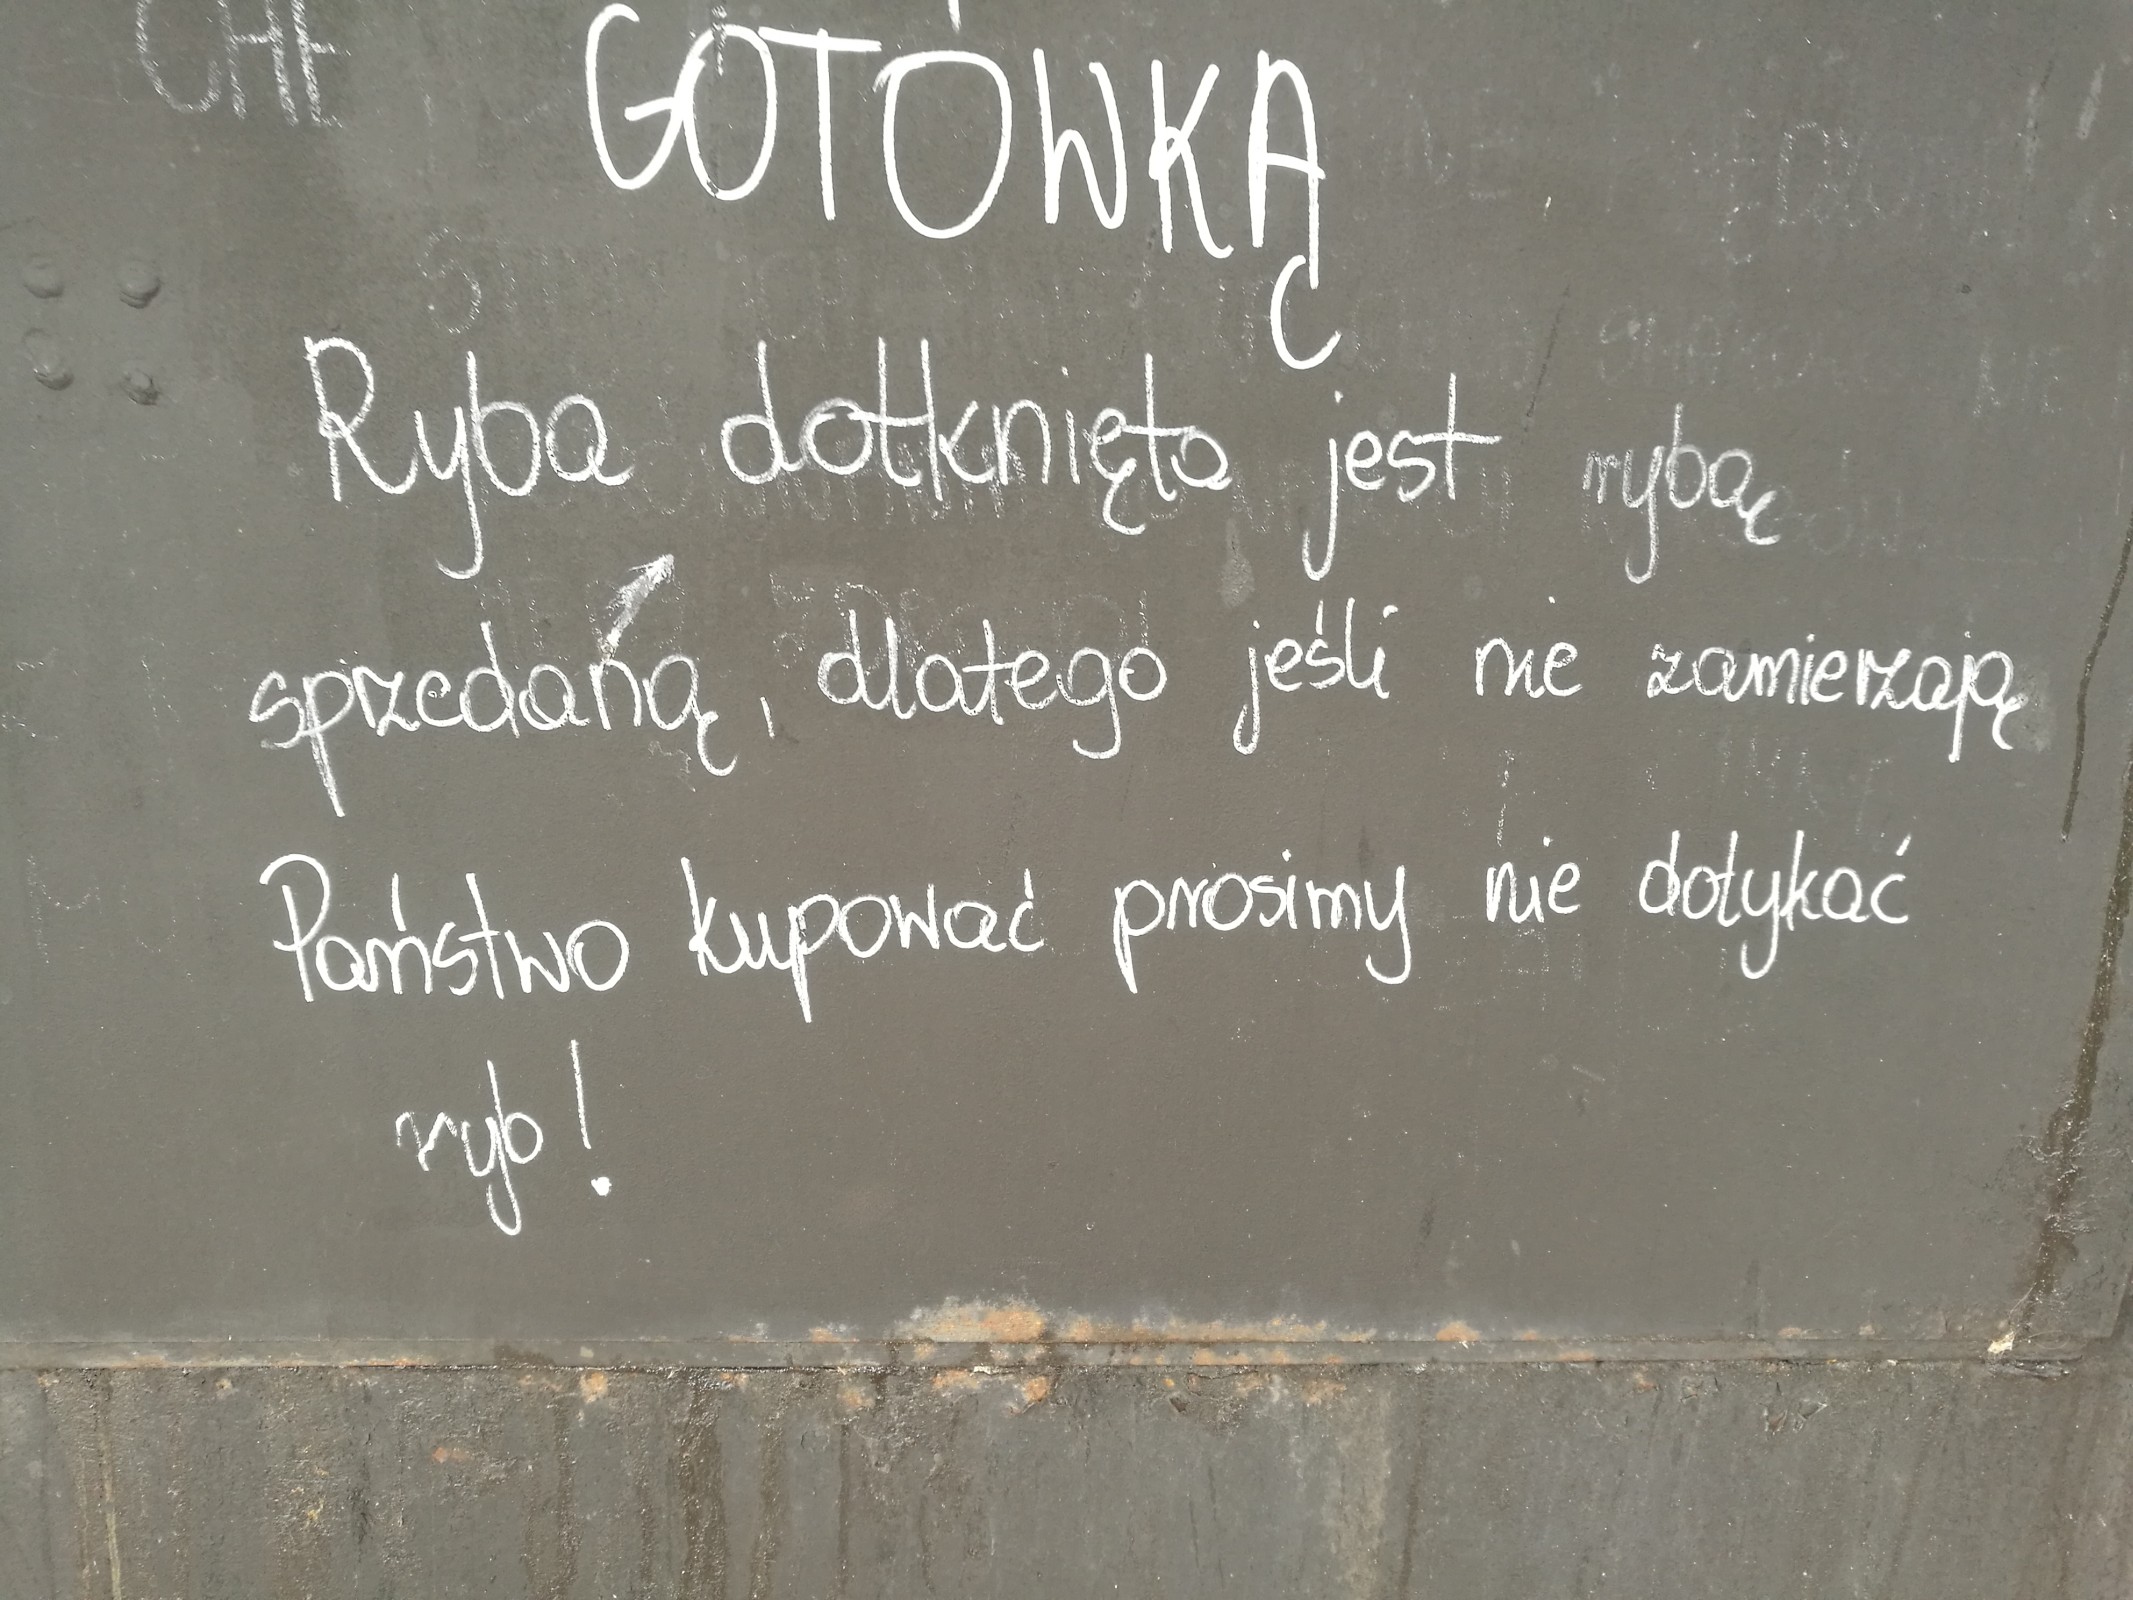 GOTÓWKĄ
Ryba dotknięta jest rybą
sprzedaną, dlatego jeśli nie zamierzają
Państwo kupować prosimy nie dotykać
ryb!